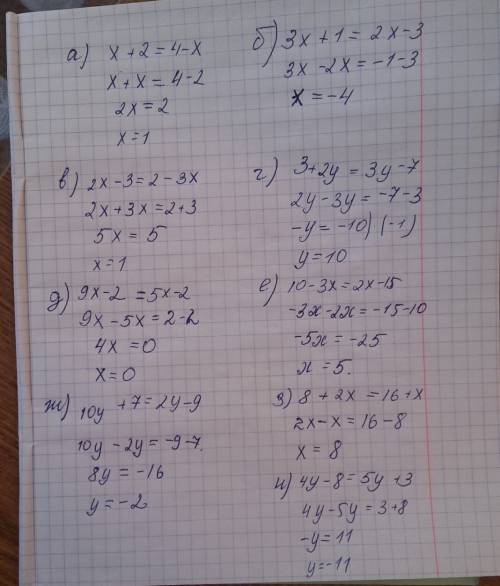 а) x + 2 = 4 - x
x + x = 4 - 2
2x = 2
x = 1
б) 3x + 1 = 2x - 3
3x - 2x = -1 - 3
x = -4
в) 2x - 3 = 2 - 3x
2x + 3x = 2 + 3
5x = 5
x = 1
г) 3 + 2y = 3y - 7
2y - 3y = -7 - 3
-y = -10 | (-1)
y = 10
д) 9x - 2 = 5x - 2
9x - 5x = 2 - 2
4x = 0
x = 0
е) 10 - 3x = 2x - 15
-3x - 2x = -15 - 10
-5x = -25
x = 5.
ж) 10y + 7 = 2y - 9
10y - 2y = -9 - 7.
8y = -16
y = -2
з) 8 + 2x = 16 + x
2x - x = 16 - 8
x = 8
и) 4y - 8 = 5y + 3
4y - 5y = 3 + 8
-y = 11
y = -11